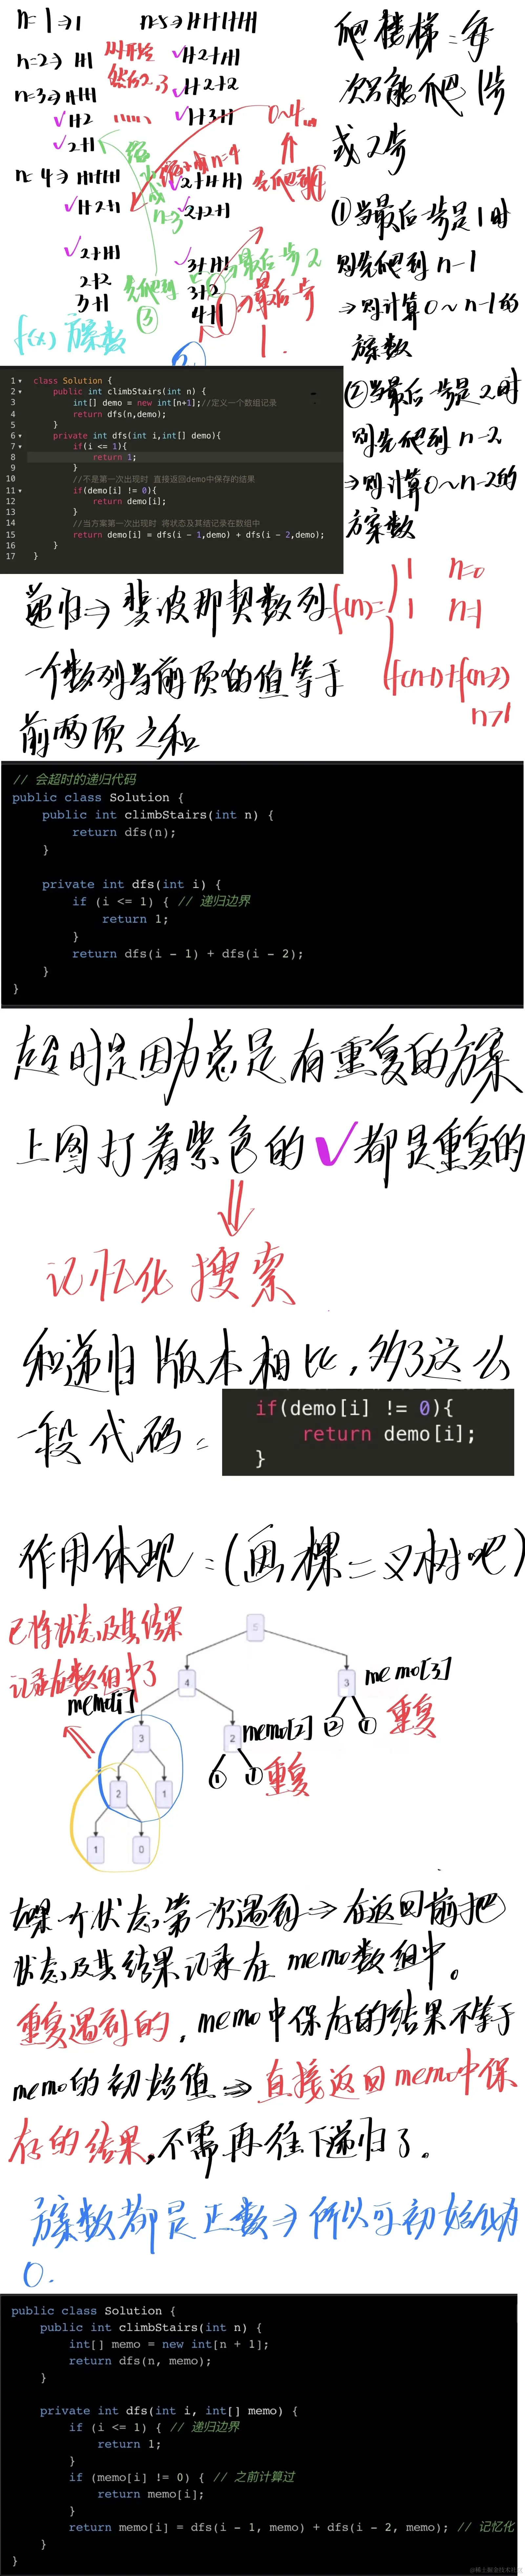 n=1⇒1
n=2⇒1+1
n=3⇒1+1+1
1+2
2+1
n=4⇒1+1+1+1
1+2+1
2+1+1
2+2
3+1
f(x) 方案数
n=5⇒1+1+1+1+1
1+2+1+1
1+2+2
1+3+1
2+1+1+1
2+2+1
3+1+1
3+2
4+1
先爬到
③
⇒最后一步2
⇒最后一步
1.
爬楼梯:每
次只能爬1步
或2步
①当最后一步是1时
则先爬到n-1
⇒则计算0~n-1的
方案数
②当最后一步是2时
则先爬到n-2
⇒则计算0~n-2的
方案数
1 class Solution {
2 public int climbStairs(int n) {
3 int[] demo = new int[n+1];//定义一个数组记录
4 return dfs(n,demo);
5 }
6 private int dfs(int i,int[] demo){
7 if(i <= 1){
8 return 1;
9 }
10 //不是第一次出现时 直接返回demo中保存的结果
11 if(demo[i] != 0){
12 return demo[i];
13 }
14 //当方案第一次出现时 将状态及其结记录在数组中
15 return demo[i] = dfs(i - 1,demo) + dfs(i - 2,demo);
16 }
17 }
递归⇒斐波那契数列
一个数列当前项的值等于
前两项之和
f(n)=
1 n=0
1 n=1
f(n-1)+f(n-2)
n>1
// 会超时的递归代码
public class Solution {
public int climbStairs(int n) {
return dfs(n);
}
private int dfs(int i) {
if (i <= 1) { // 递归边界
return 1;
}
return dfs(i - 1) + dfs(i - 2);
}
}
超时是因为总是有重复的方案
上图打着紫色的✓都是重复的
记忆化搜索
和递归版本相比,多了这么
一段代码:
if(demo[i] != 0){
return demo[i];
}
作用体现:(画棵二叉树吧)
已将状态及其结果
记录在数组中了
memo[i]
5
4
3
memo[3]
重复
3
2
memo[2]
重复
2
1
②
①
①
①
1
0
如果一个状态第一次遇到⇒在返回前把
状态及其结果记录在memo数组中。
重复遇到的,memo中保存的结果不等于
memo的初始值⇒直接返回memo中保
存的结果,不需再往下递归了。
方案数都是正数⇒所以可初始化为
0.
public class Solution {
public int climbStairs(int n) {
int[] memo = new int[n + 1];
return dfs(n, memo);
}
private int dfs(int i, int[] memo) {
if (i <= 1) { // 递归边界
return 1;
}
if (memo[i] != 0) { // 之前计算过
return memo[i];
}
return memo[i] = dfs(i - 1, memo) + dfs(i - 2, memo); // 记忆化
}
}
@稀土掘金技术社区